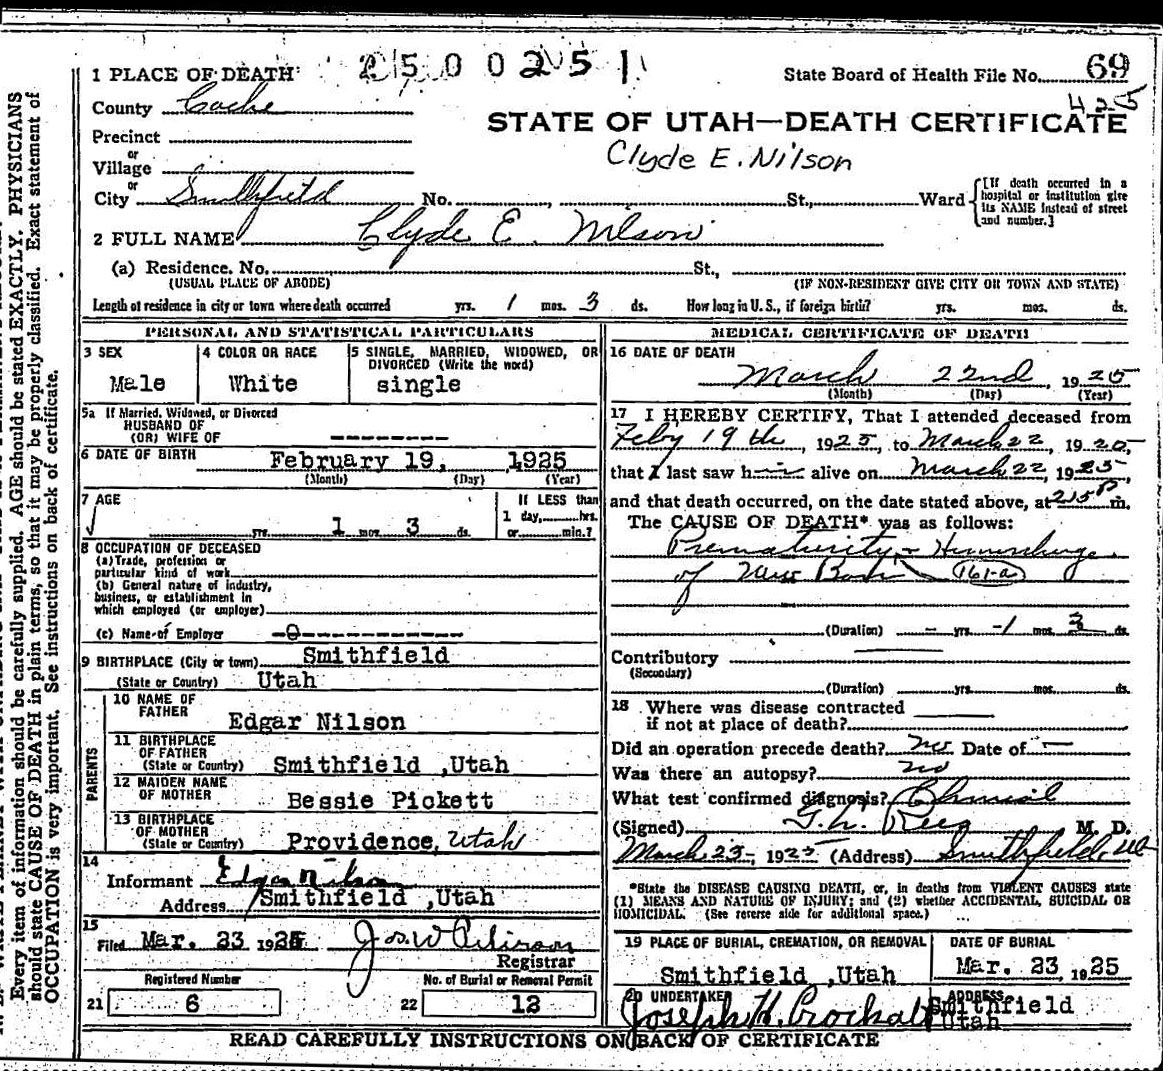 2500251
1 PLACE OF DEATH State Board of Health File No. 69
County Cache 425
STATE OF UTAH—DEATH CERTIFICATE
Precinct
Clyde E. Nilson
or
Village
or
City Smithfield No. St., Ward [If death occurred in a hospital or institution give its NAME instead of street and number.]
2 FULL NAME Clyde E. Nilson
(a) Residence. No. St.,
(USUAL PLACE OF ABODE) (IF NON-RESIDENT GIVE CITY OR TOWN AND STATE)
Length of residence in city or town where death occurred yrs. 1 mos. 3 ds. How long in U. S., if foreign birth? yrs. mos. ds.
PERSONAL AND STATISTICAL PARTICULARS
3 SEX
Male
4 COLOR OR RACE
White
5 SINGLE, MARRIED, WIDOWED, OR
DIVORCED (Write the word)
single
5a If Married, Widowed, or Divorced
HUSBAND OF
(OR) WIFE OF --------
6 DATE OF BIRTH February 19, 1925
(Month) (Day) (Year)
7 AGE
yrs. 1 mos. 3 ds.
If LESS than
1 day, hrs.
or min.?
8 OCCUPATION OF DECEASED
(a) Trade, profession or
particular kind of work
(b) General nature of industry,
business, or establishment in
which employed (or employer)
(c) Name of Employer -0-----------
9 BIRTHPLACE (City or town) Smithfield
(State or Country) Utah
PARENTS
10 NAME OF
FATHER Edgar Nilson
11 BIRTHPLACE
OF FATHER
(State or Country) Smithfield ,Utah
12 MAIDEN NAME
OF MOTHER Bessie Pickett
13 BIRTHPLACE
OF MOTHER
(State or Country) Providence, Utah
14
Informant Edgar Nilson
Address Smithfield ,Utah
15
Filed Mar. 23 1925 Jos. W.
Registrar
Registered Number
21 6
No. of Burial or Removal Permit
22 12
MEDICAL CERTIFICATE OF DEATH
16 DATE OF DEATH
March 22nd, 1925
(Month) (Day) (Year)
17 I HEREBY CERTIFY, That I attended deceased from
Feby 19th, 1925, to March 22, 1925,
that I last saw him alive on March 22, 1925,
and that death occurred, on the date stated above, at 215 P m.
The CAUSE OF DEATH* was as follows:
Prematurity - Hemorrhage
of New Born 161-a
(Duration) – yrs. -1 mos. 3 ds.
Contributory
(Secondary)
(Duration) yrs. mos. ds.
18 Where was disease contracted
if not at place of death?
Did an operation precede death? no Date of —
Was there an autopsy? no
What test confirmed diagnosis? Clinical
(Signed) G. L. Rees M. D.
March 23, 1925 (Address) Smithfield, Ut
*State the DISEASE CAUSING DEATH, or, in deaths from VIOLENT CAUSES state
(1) MEANS AND NATURE OF INJURY; and (2) whether ACCIDENTAL, SUICIDAL OR
HOMICIDAL. (See reverse side for additional space.)
19 PLACE OF BURIAL, CREMATION, OR REMOVAL
Smithfield ,Utah
DATE OF BURIAL
Mar. 23, 1925
20 UNDERTAKER
Joseph H.
ADDRESS
Smithfield
Utah
READ CAREFULLY INSTRUCTIONS ON BACK OF CERTIFICATE
Every item of information should be carefully supplied. AGE should be stated EXACTLY. PHYSICIANS
should state CAUSE OF DEATH in plain terms, so that it may be properly classified. Exact statement of
OCCUPATION is very important. See instructions on back of certificate.